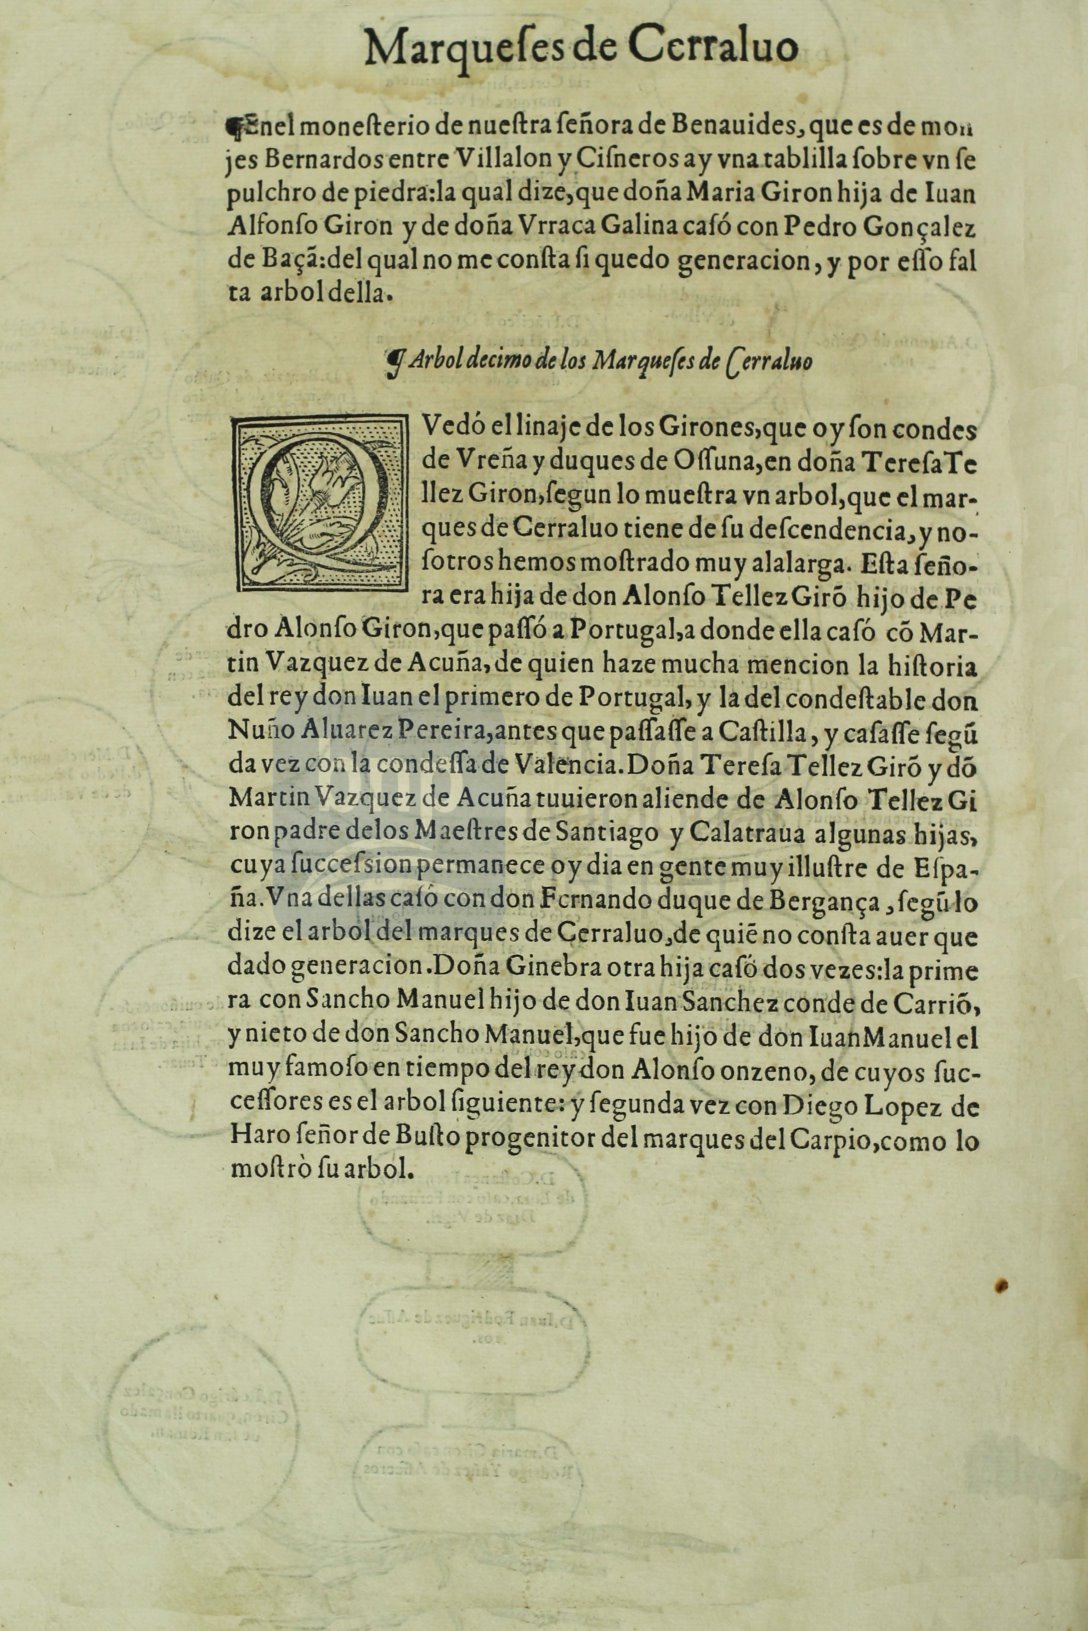 Marqueſes de Cerraluo
¶Enel moneſterio de nueſtra ſeñora de Benauides, que es de mon
jes Bernardos entre Villalon y Ciſneros ay vna tablilla ſobre vn ſe
pulchro de piedra:la qual dize,que doña Maria Giron hija de Iuan
Alfonſo Giron y de doña Vrraca Galina caſó con Pedro Gonçalez
de Baçã:del qual no me conſta ſi quedo generacion, y por eſſo fal
ta arbol della.
¶ Arbol decimo de los Marqueſes de Cerraluo
QVedó el linaje de los Girones,que oy ſon condes
de Vreña y duques de Oſſuna,en doña Tereſa Te
llez Giron,ſegun lo mueſtra vn arbol,que el mar-
ques de Cerraluo tiene de ſu deſcendencia,y no-
ſotros hemos moſtrado muy alalarga. Eſta ſeño-
ra era hija de don Alonſo Tellez Girõ hijo de Pe
dro Alonſo Giron,que paſſó a Portugal,a donde ella caſó cõ Mar-
tin Vazquez de Acuña,de quien haze mucha mencion la hiſtoria
del rey don Iuan el primero de Portugal, y la del condeſtable don
Nuño Aluarez Pereira,antes que paſſaſſe a Caſtilla, y caſaſſe ſegũ
da vez con la condeſſa de Valencia.Doña Tereſa Tellez Girõ y dõ
Martin Vazquez de Acuña tuuieron aliende de Alonſo Tellez Gi
ron padre delos Maeſtres de Santiago y Calatraua algunas hijas,
cuya ſucceſsion permanece oy dia en gente muy illuſtre de Eſpa-
ña.Vna dellas caſó con don Fernando duque de Bergança ,ſegũ lo
dize el arbol del marques de Cerraluo,de quiẽ no conſta auer que
dado generacion.Doña Ginebra otra hija caſó dos vezes:la prime
ra con Sancho Manuel hijo de don Iuan Sanchez conde de Carriõ,
y nieto de don Sancho Manuel,que fue hijo de don Iuan Manuel el
muy famoſo en tiempo del rey don Alonſo onzeno, de cuyos ſuc-
ceſſores es el arbol ſiguiente: y ſegunda vez con Diego Lopez de
Haro ſeñor de Buſto progenitor del marques del Carpio,como lo
moſtrò ſu arbol.